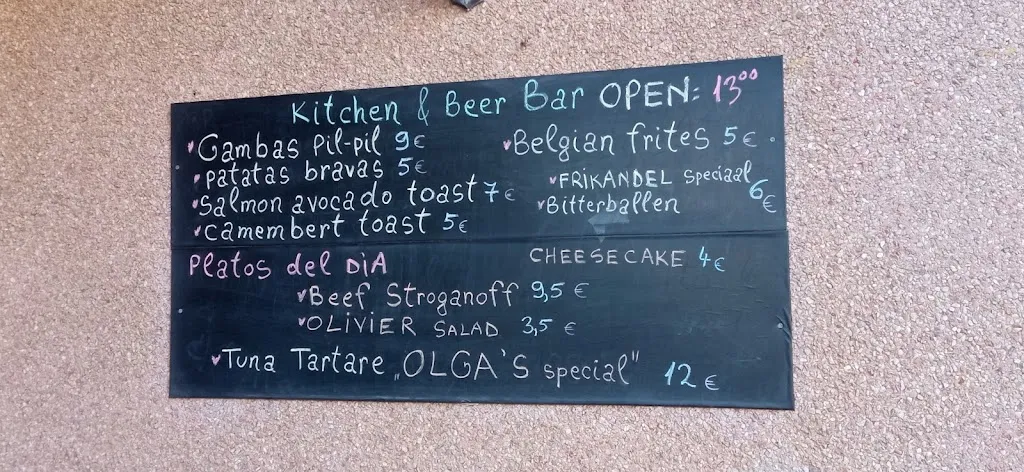 Kitchen & Beer Bar OPEN: 13⁰⁰
Gambas Pil-pil 9€
patatas bravas 5€
Salmon avocado toast 7€
camembert toast 5€
Belgian frites 5€
FRIKANDEL Speciaal 6€
Bitterballen
Platos del DiA
CHEESECAKE 4€
Beef Stroganoff 9,5 €
OLIVIER SALAD 3,5 €
Tuna Tartare „OLGA'S special" 12 €